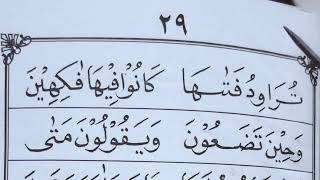 ٢٩
تُرَاوِدُ فَتٰىهَا كَانُوْا فِيْهَا فٰكِهِيْنَ
وَحِيْنَ تَضَعُوْنَ وَيَقُوْلُوْنَ مَتٰى